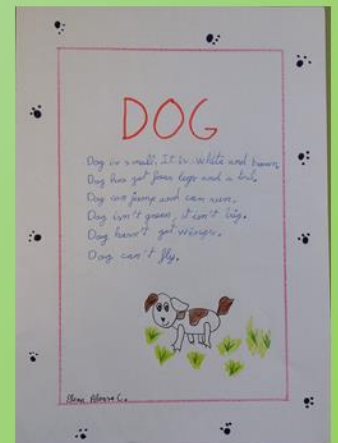 DOG
Dog is small. It is white and brown.
Dog has got four legs and a tail.
Dog can jump and can run.
Dog isn't green, it isn't big.
Dog hasn't got wings.
Dog can't fly.
Elena C.